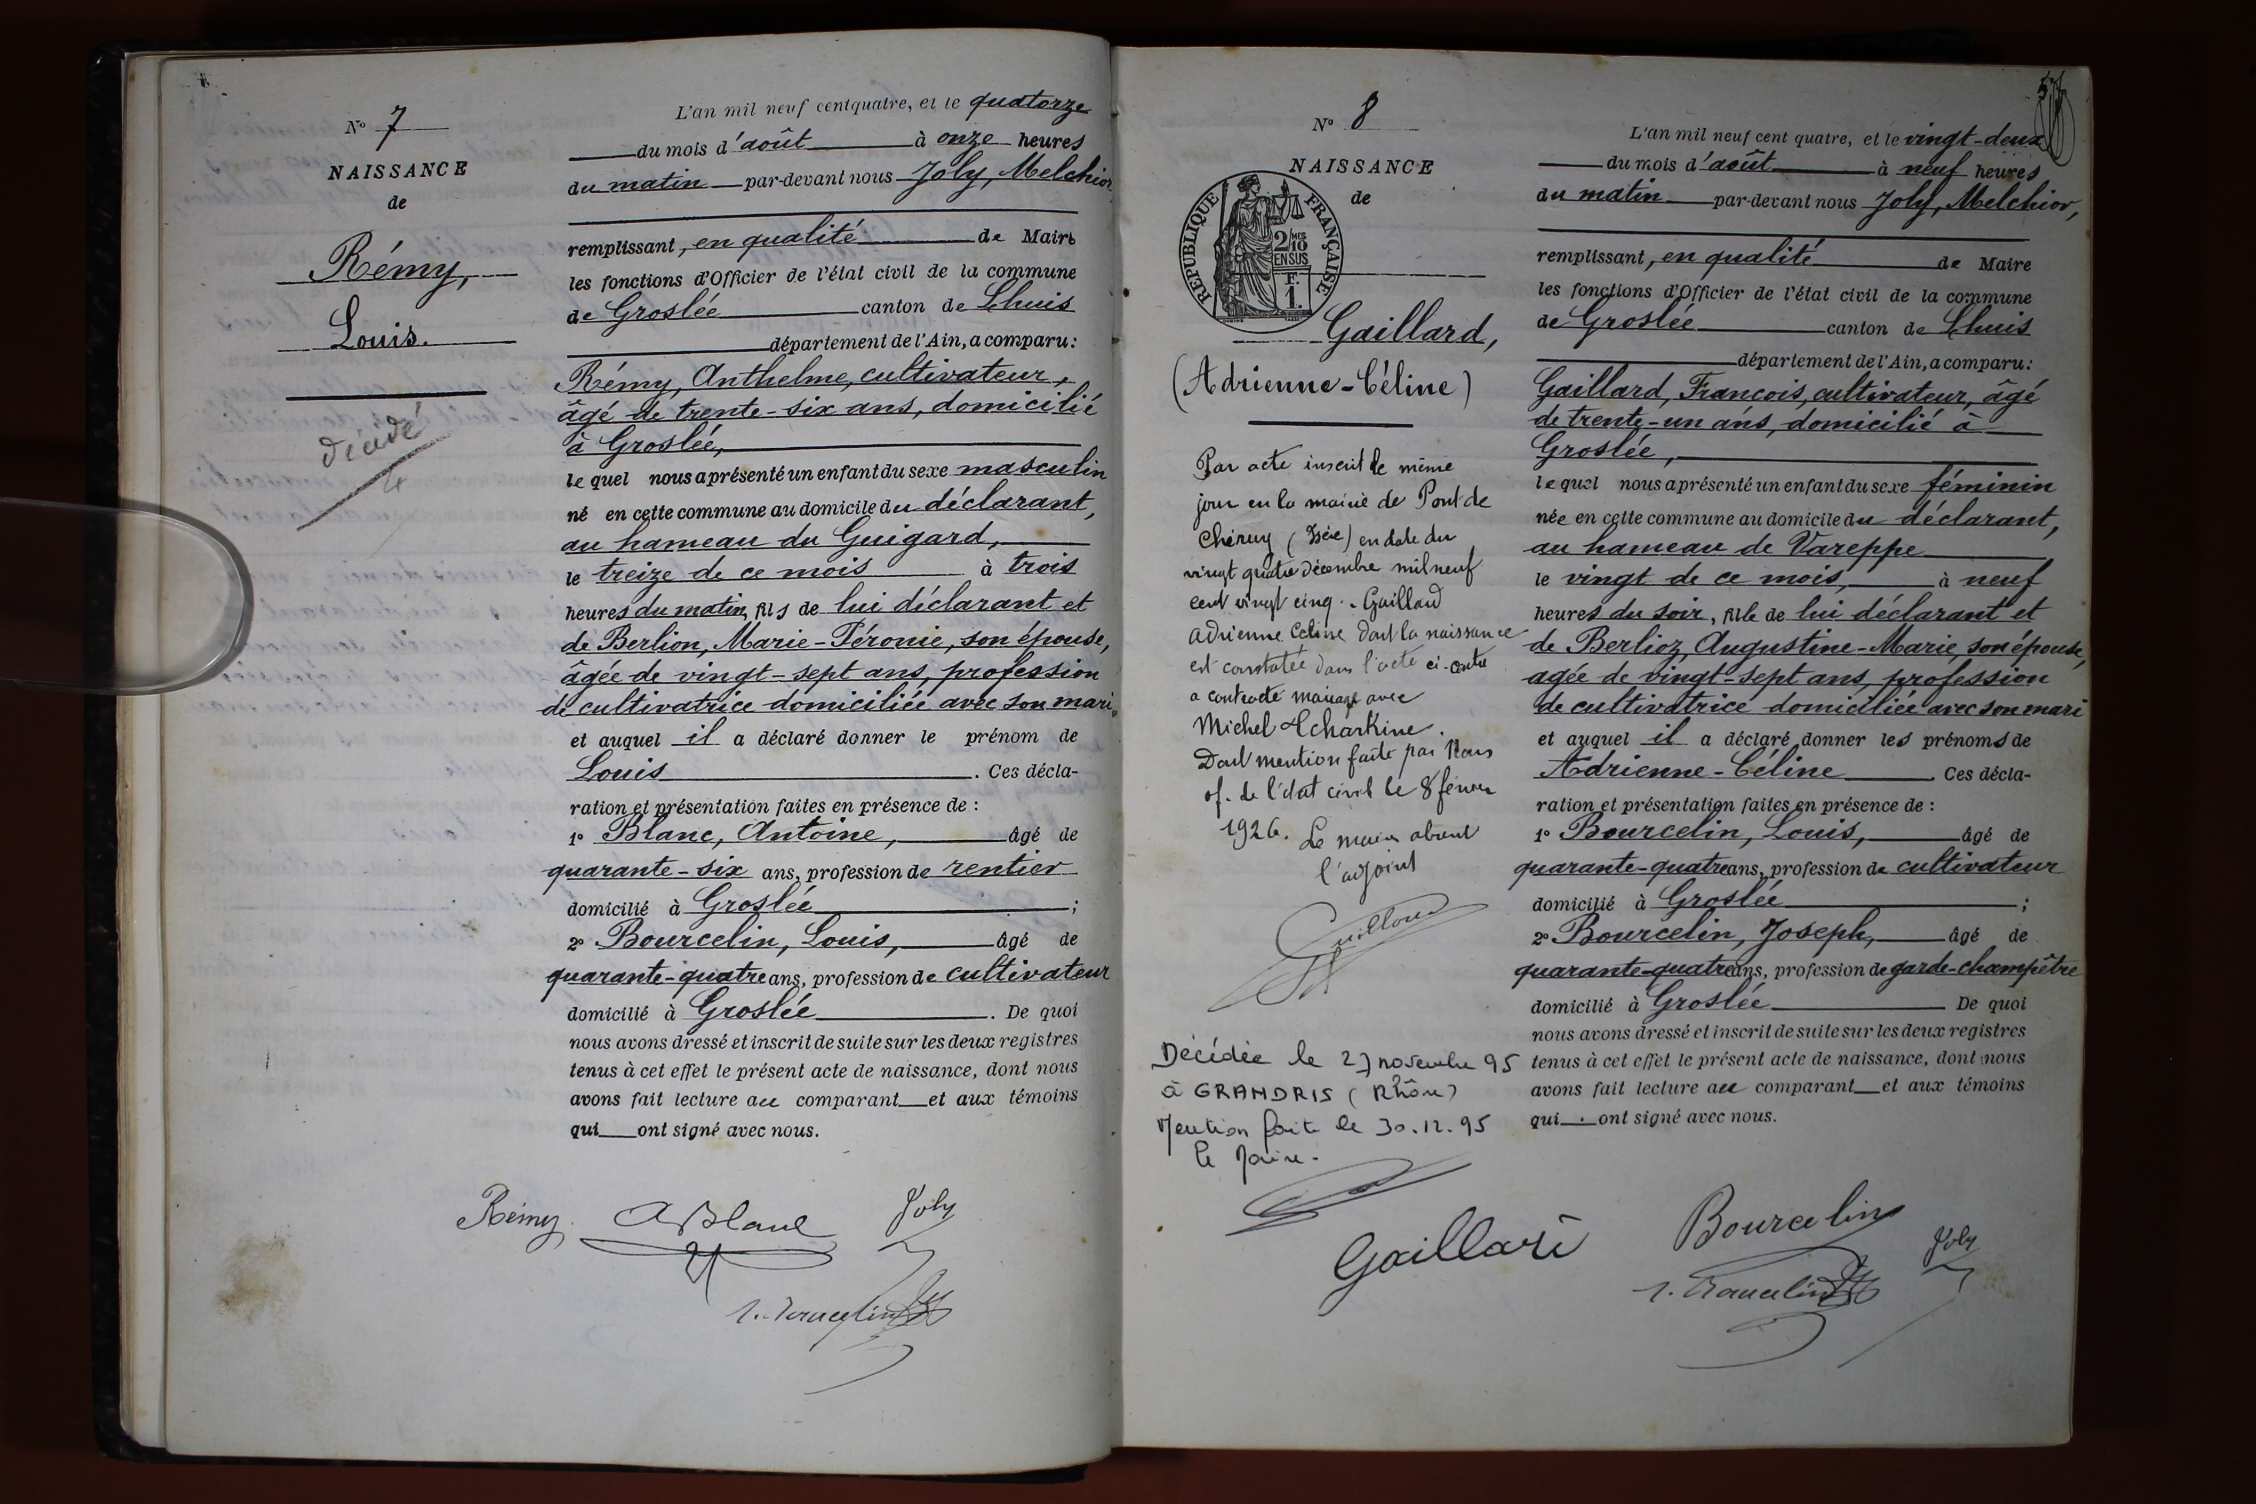 N° 7
NAISSANCE
de
Rémy,
Louis.
décédé
L'an mil neuf cent quatre, et le quatorze
du mois d'août à onze heures
du matin par-devant nous Joly, Melchior
remplissant, en qualité de Maire
les fonctions d'Officier de l'état civil de la commune
de Groslée canton de Lhuis
département de l'Ain, a comparu:
Rémy, Anthelme, cultivateur,
âgé de trente-six ans, domicilié
à Groslée,
le quel nous a présenté un enfant du sexe masculin
né en cette commune au domicile du déclarant,
au hameau du Guigard,
le treize de ce mois à trois
heures du matin, fils de lui déclarant et
de Berlion, Marie-Péronie, son épouse,
âgée de vingt-sept ans, profession
de cultivatrice domiciliée avec son mari,
et auquel il a déclaré donner le prénom de
Louis. Ces décla-
ration et présentation faites en présence de :
1° Blanc, Antoine, âgé de
quarante-six ans, profession de rentier
domicilié à Groslée ;
2° Bourcelin, Louis, âgé de
quarante-quatre ans, profession de cultivateur
domicilié à Groslée. De quoi
nous avons dressé et inscrit de suite sur les deux registres
tenus à cet effet le présent acte de naissance, dont nous
avons fait lecture au comparant et aux témoins
qui ont signé avec nous.
Rémy. A Blanc Joly
N° 8
NAISSANCE
de
REPUBLIQUE FRANÇAISE
2/10 MES
EN SUS
F.
1.
Gaillard,
(Adrienne-Céline)
Par acte inscrit le même
jour en la mairie de Pont de
Chéruy (Isère) en date du
vingt quatre décembre mil neuf
cent vingt cinq. Gaillard
Adrienne Céline dont la naissance
est constatée dans l'acte ci-contre
a contracté mariage avec
Michel Acharkine.
Dont mention faite par Nous
of. de l'état civil le 8 février
1926. Le maire absent
l'adjoint
Guilloud
Décédée le 27 novembre 95
à GRANDRIS (Rhône)
Mention faite le 30.12.95
Le Maire.
L'an mil neuf cent quatre, et le vingt-deux
du mois d'août à neuf heures
du matin par-devant nous Joly, Melchior,
remplissant, en qualité de Maire
les fonctions d'Officier de l'état civil de la commune
de Groslée canton de Lhuis
département de l'Ain, a comparu:
Gaillard, François, cultivateur, âgé
de trente-un ans, domicilié à
Groslée,
le quel nous a présenté un enfant du sexe féminin
née en cette commune au domicile du déclarant,
au hameau de Vareppe
le vingt de ce mois, à neuf
heures du soir, fille de lui déclarant et
de Berlioz, Augustine-Marie, son épouse,
agée de vingt-sept ans, profession
de cultivatrice domiciliée avec son mari
et auquel il a déclaré donner les prénoms de
Adrienne-Céline. Ces décla-
ration et présentation faites en présence de :
1° Bourcelin, Louis, âgé de
quarante-quatre ans, profession de cultivateur
domicilié à Groslée ;
2° Bourcelin, Joseph, âgé de
quarante-quatre ans, profession de garde-champêtre
domicilié à Groslée De quoi
nous avons dressé et inscrit de suite sur les deux registres
tenus à cet effet le présent acte de naissance, dont nous
avons fait lecture au comparant et aux témoins
qui ont signé avec nous.
Gaillard Bourcelin Joly